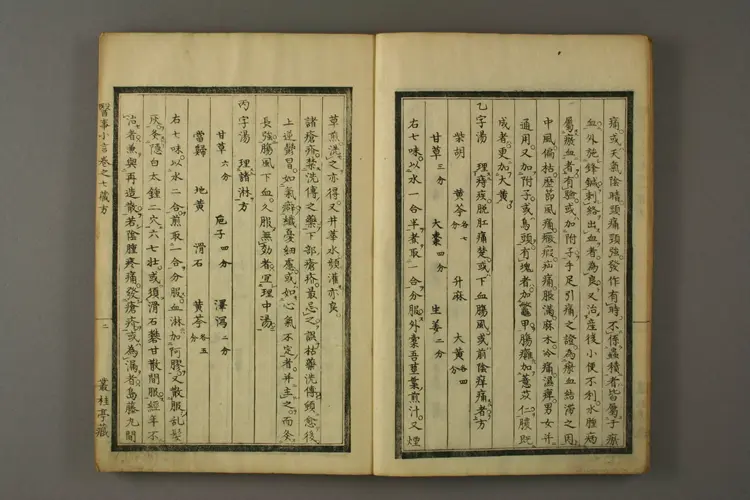 痛或天氣陰晴頭痛頸強發作有時不俘蟲積者皆屬于瘀
血外施鋒鍼刺絡出血者為良又治産後小便不利水腫病
屬瘀血者有驗或加附子手足引痛之證為瘀血結滯之因
中風偏枯歷節風痛瘢瘕疝痛脹滿麻木冷痛濕痺男女幷
通用又加附子或烏頭有塊者加鼈甲腸癰加薏苡仁膿既
成者更加大黃
乙字湯 理痔疾脫肛痛楚或下血腸風或前陰痒痛者方
柴胡 黃芩各七 升麻 大黃各四
甘草三分 大棗四分 生姜二分
右七味以水一合半煮取一合分服外囊吾莖葉煎汁又煙
草煎洗之亦得又井華水頻灌亦良
諸瘡疥禁洗傳之藥下部瘡疥最忌之誤枯藥洗傳頭愈後
上逆鬱冒如氣癖纖憂細慮或如心氣不定者幷主之而灸
長強腸風下血久服無効者宜理中湯
丙字湯 理諸淋方
甘草六分 梔子四分 澤瀉二分
當歸 地黃 滑石 黃芩各五分
右七味以水二合煎取一合分服血淋加阿膠又散服乱髪
灰灸隠白太鍾二穴六七壮或項滑石礬甘散間服經年不
治者兼與再造散若陰腫疼痛發瘡疥或為漏者島藤九間
醫事小言卷之七藏方
二
叢桂亭藏